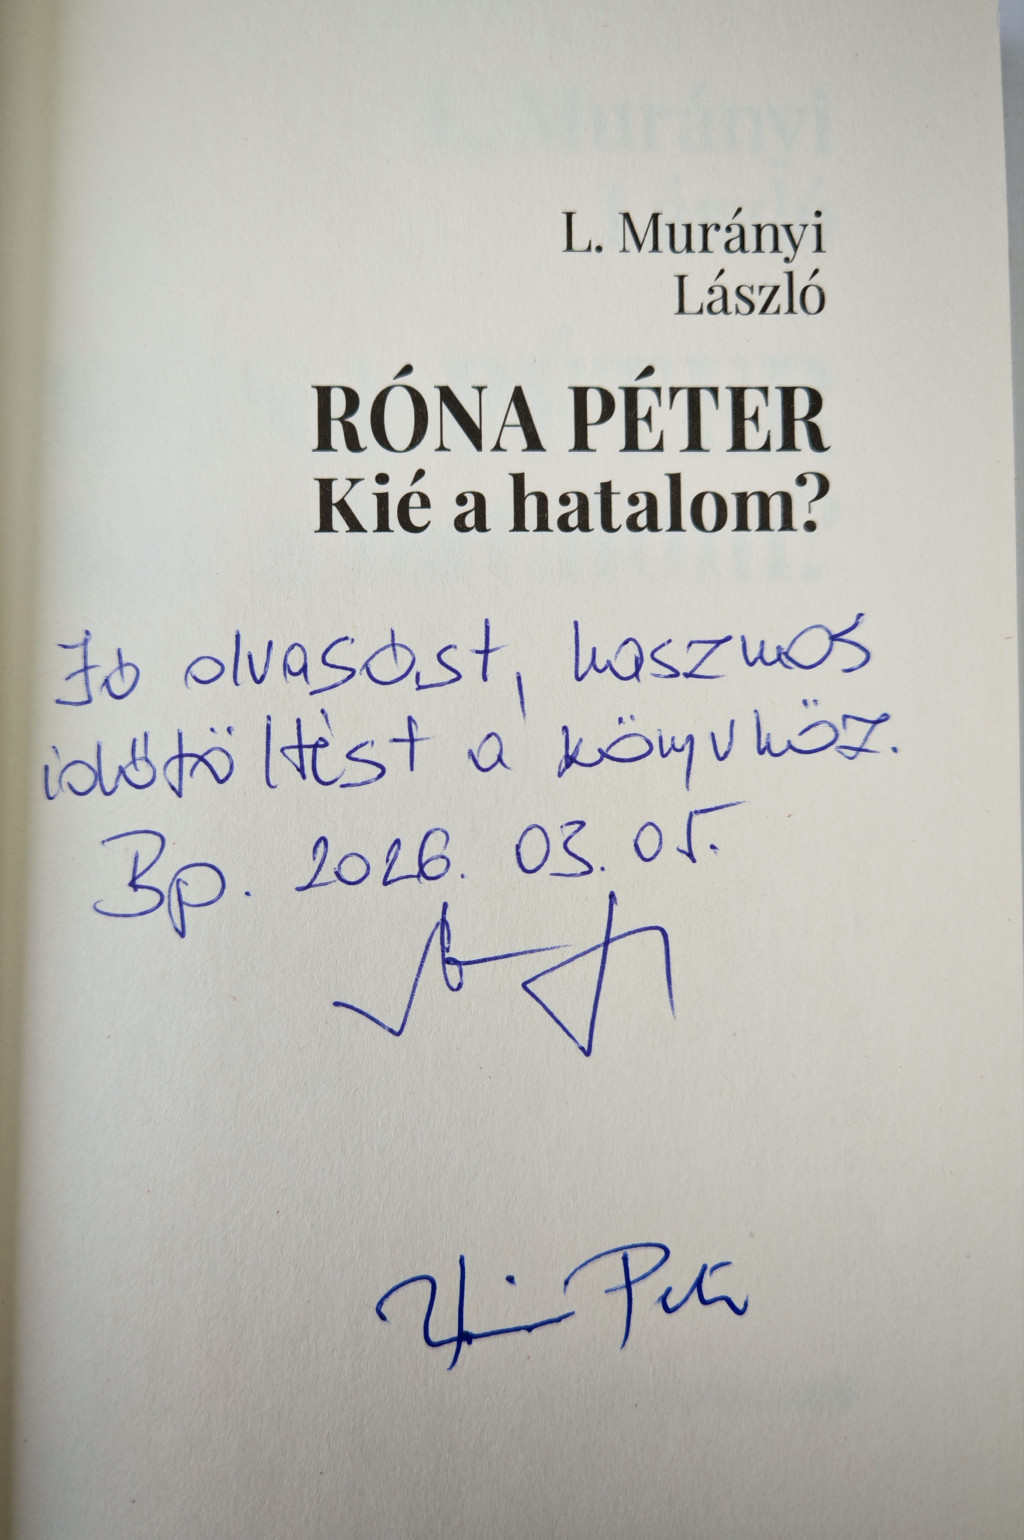 L. Murányi
László
RÓNA PÉTER
Kié a hatalom?
Jó olvasást, hasznos
időtöltést a könyvhöz.
Bp. 2026. 03. 05.
Péter